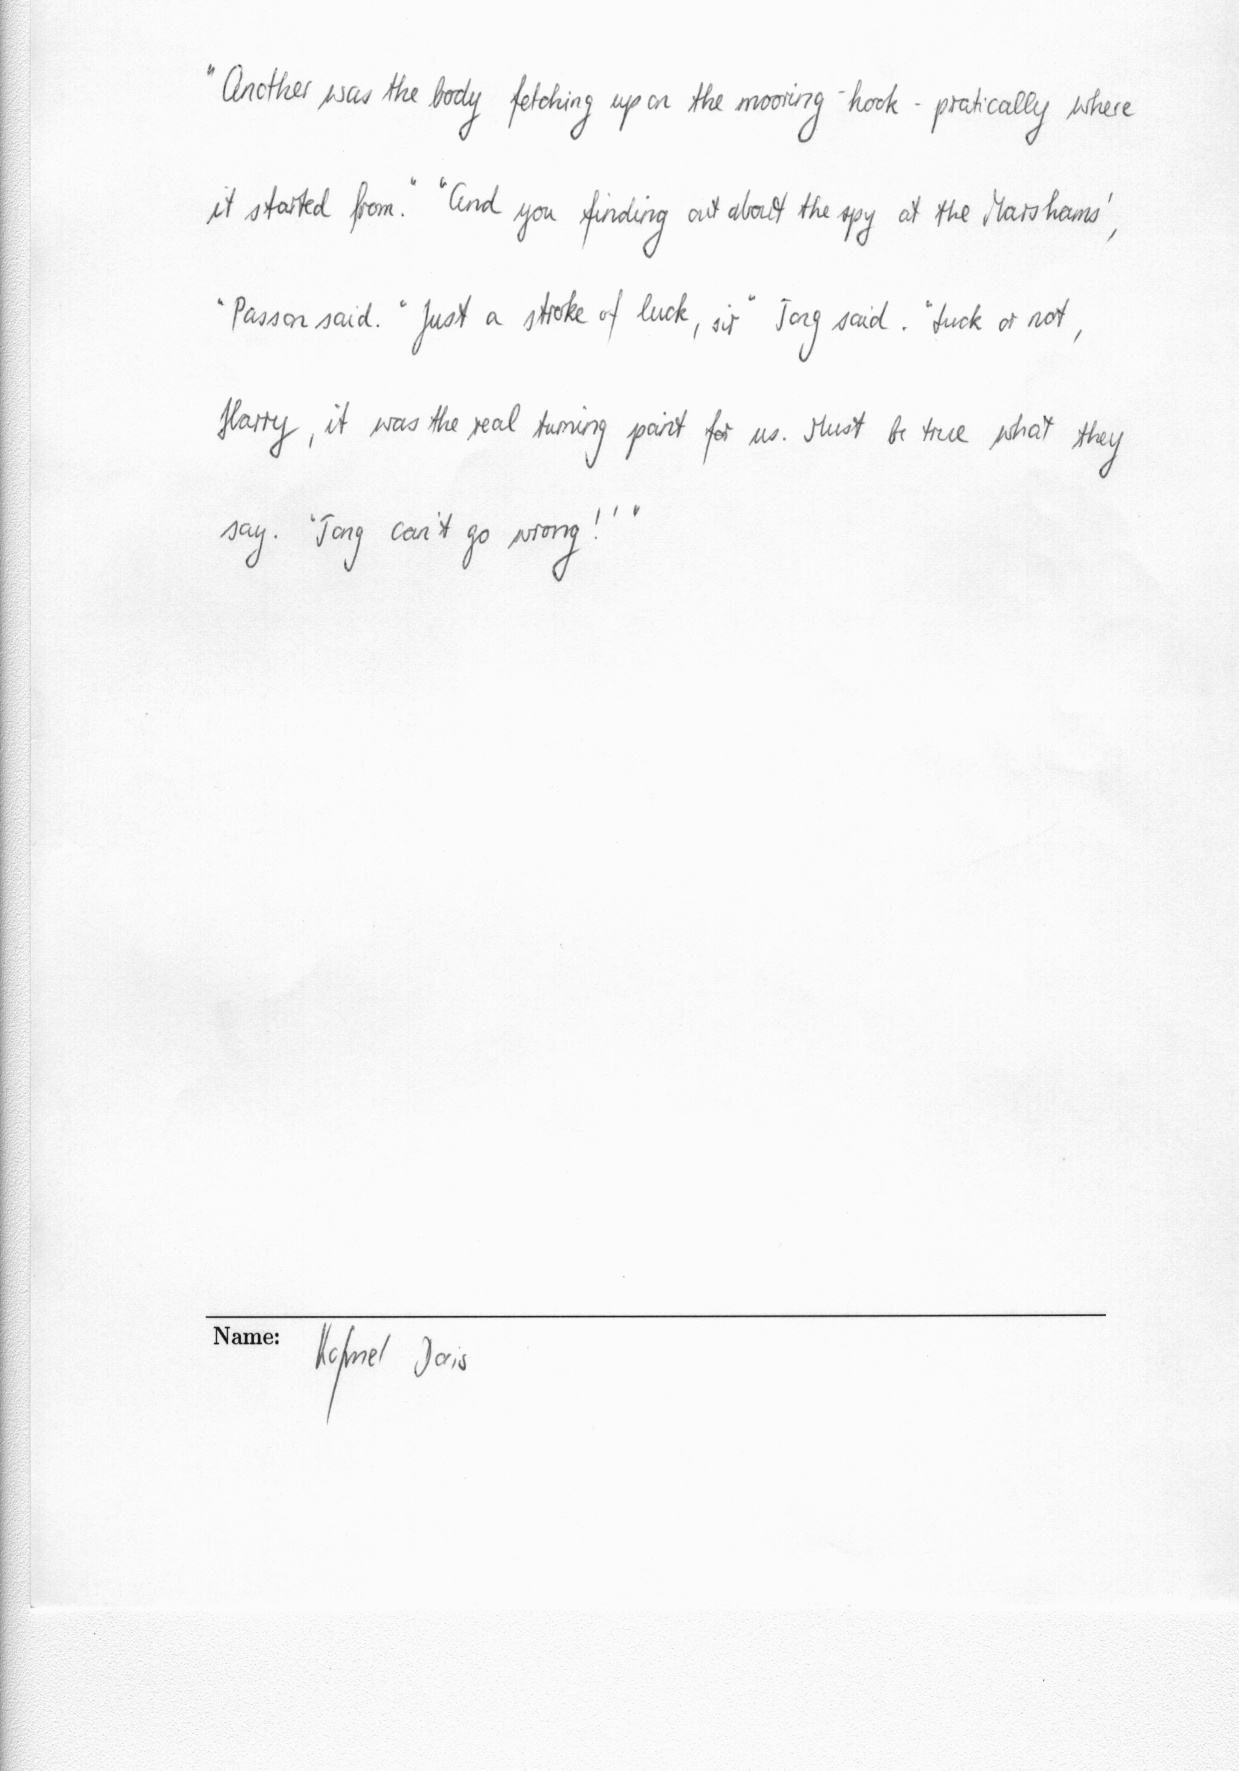 "Another was the body fetching up on the mooring-hook - pratically where
it started from." "And you finding out about the spy at the Marshams',
"Passon said. "Just a stroke of luck, sir" Jong said. "Luck or not,
Harry, it was the real turning point for us. Must be true what they
say. 'Jong can't go wrong!'"
Name: Doris